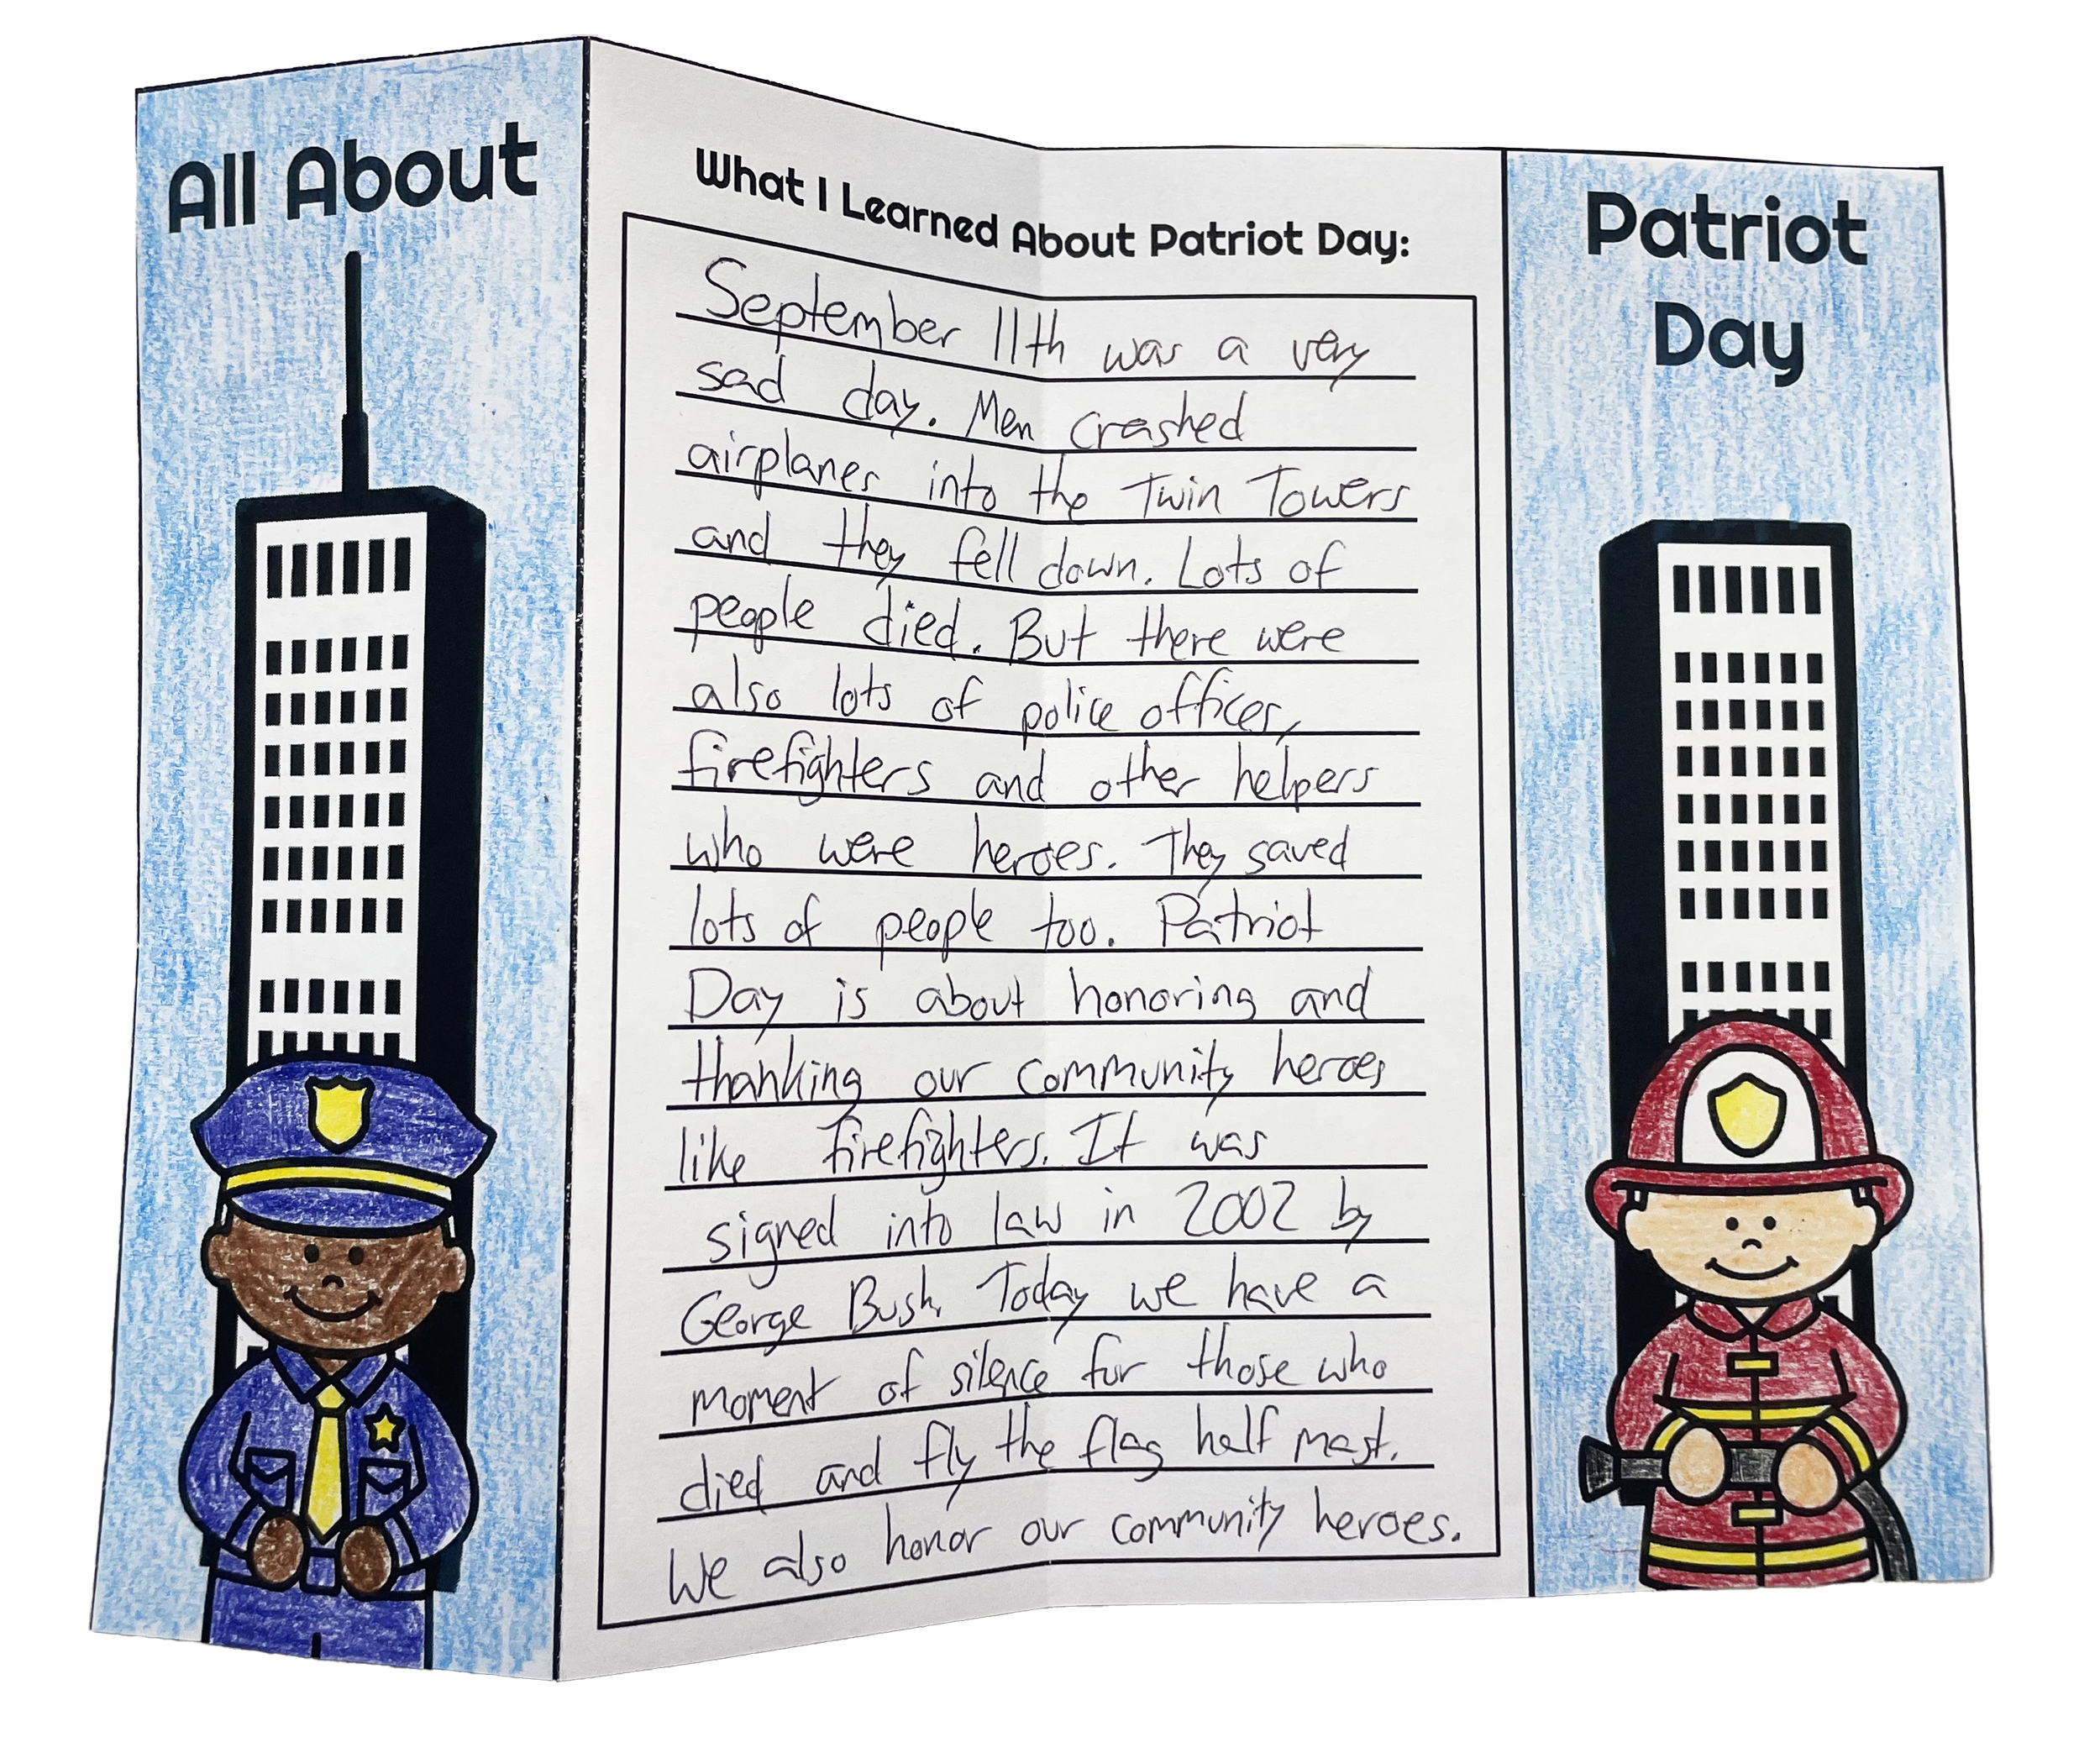 All About
What I Learned About Patriot Day:
September 11th was a very
sad day. Men crashed
airplanes into the Twin Towers
and they fell down. Lots of
people died. But there were
also lots of police officers,
firefighters and other helpers
who were heroes. They saved
lots of people too. Patriot
Day is about honoring and
thanking our community heroes
like firefighters. It was
signed into law in 2002 by
George Bush. Today we have a
moment of silence for those who
died and fly the flag half mast.
We also honor our community heroes.
Patriot
Day